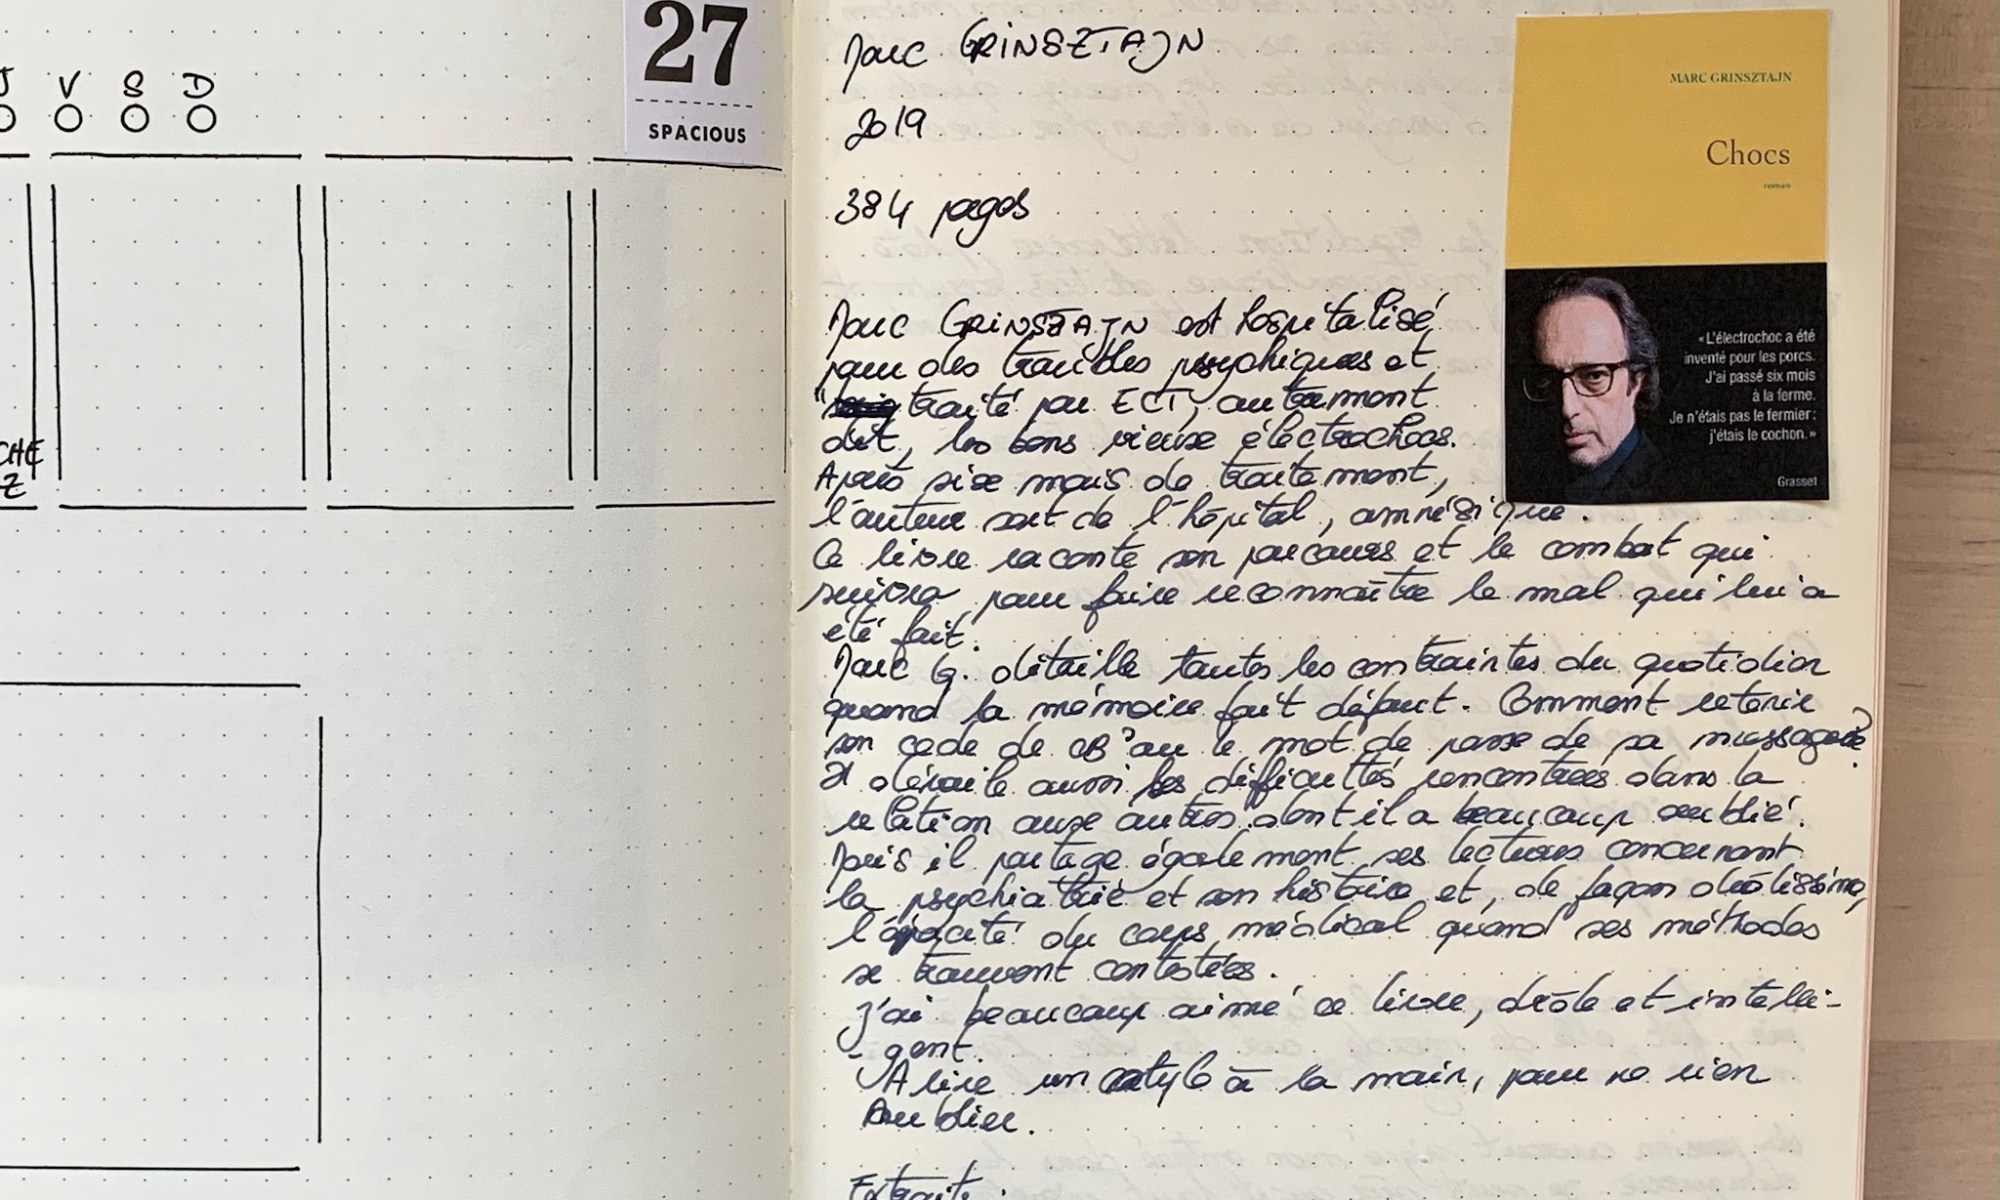 J V S D
27
SPACIOUS
CHE
Z
Marc GRINSZTAJN
2019
384 pages
MARC GRINSZTAJN
Chocs
roman
«L'électrochoc a été
inventé pour les porcs.
J'ai passé six mois
à la ferme.
Je n'étais pas le fermier :
j'étais le cochon.»
Grasset
Marc GRINSZTAJN est hospitalisé
pour des troubles psychiques et
traité par ECT, autrement
dit, les bons vieux électrochocs.
Après six mois de traitement,
l'auteur sort de l'hôpital, amnésique.
Ce livre raconte son parcours et le combat qui
suivra pour faire reconnaître le mal qui lui a
été fait.
Marc G. détaille toutes les contraintes du quotidien
quand la mémoire fait défaut. Comment retenir
son code de CB ou le mot de passe de sa messagerie ?
Il dévoile aussi les difficultés rencontrées dans la
relation aux autres dont il a beaucoup oublié.
Mais il partage également ses lectures concernant
la psychiatrie et son histoire et, de façon drôlissime,
l'opacité du corps médical quand ses méthodes
se trouvent contestées.
J'ai beaucoup aimé ce livre, drôle et intelli-
-gent.
A lire un stylo à la main, pour ne rien
oublier.
Extraits :